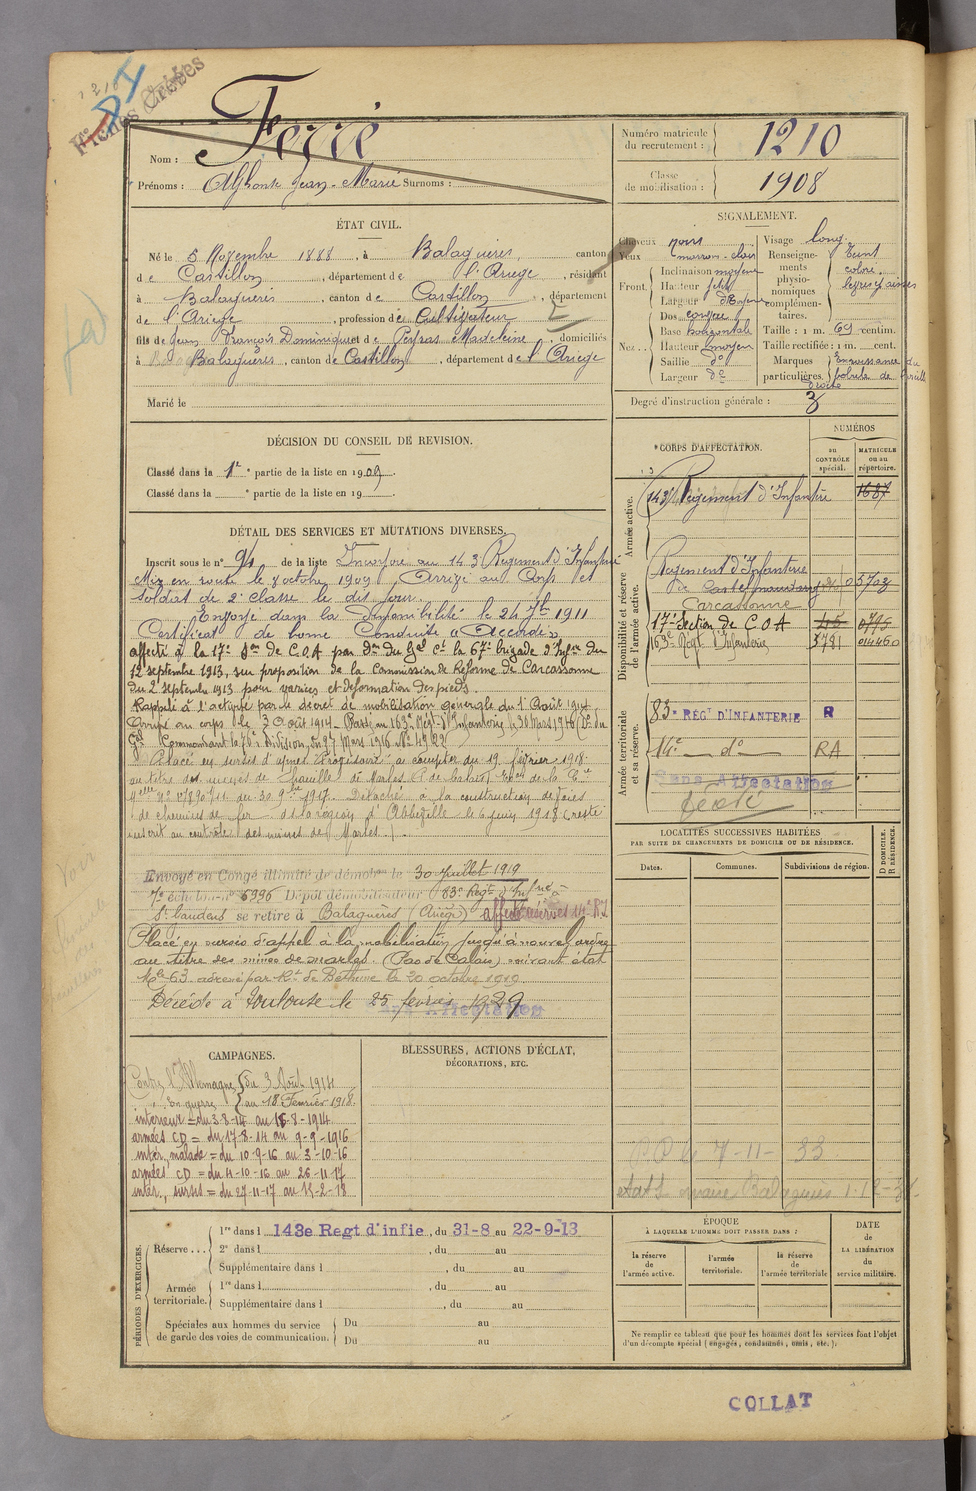 Fiches Créées
Nom : Ferré
Prénoms : Alphonse Jean-Marie Surnoms :
Numéro matricule du recrutement : 1210
Classe de mobilisation : 1908
ÉTAT CIVIL.
Né le 5 Novembre 1888, à Balaguères, canton
de Castillon, département de l'Ariège, résidant
à Balaguères, canton de Castillon, département
de l'Ariège, profession de Cultivateur
fils de Jean François Dominique et de Peyras Madeleine, domiciliés
à Balaguères, canton de Castillon, département de l'Ariège
Marié le
SIGNALEMENT.
Cheveux noirs
Yeux marron-clair
Front. Inclinaison moyenne
Hauteur petite
Largeur
Nez.. Dos
Base horizontale
Hauteur moyen
Saillie do
Largeur do
Visage long
Renseignements physionomiques complémentaires. Teint coloré.
Taille : 1 m. 69 centim.
Taille rectifiée : 1 m. cent.
Marques particulières.
Degré d'instruction générale : 3
DÉCISION DU CONSEIL DE REVISION.
Classé dans la 1re partie de la liste en 1909.
Classé dans la e partie de la liste en 19
CORPS D'AFFECTATION.
NUMÉROS
au CONTRÔLE spécial.
MATRICULE ou au répertoire.
Armée active.
143e Régiment d'Infanterie 1687
Disponibilité et réserve de l'armée active.
Régiment d'Infanterie
de Castelnaudary
Carcassonne
17e Section de C O A
163e Régt d'Infanterie 3781 014460
Armée territoriale et sa réserve.
83e RÉGt D'INFANTERIE R
14e do RA
Sans Affectation
DÉTAIL DES SERVICES ET MUTATIONS DIVERSES.
Inscrit sous le no 94 de la liste Incorporé au 143e Régiment d'Infanterie
Mis en route le 7 octobre 1909, Arrivé au Corps et
soldat de 2e classe le dit jour.
Envoyé dans la disponibilité le 24 7bre 1911
Certificat de bonne Conduite "Accordé"
affecté à la 17e Son de C.O.A par Don du Gal Ct la 67e brigade d'Infie du
12 septembre 1913, sur proposition de la Commission de Réforme de Carcassonne
du 2 septembre 1913 pour varices et déformation des pieds.
Rappelé à l'activité par le décret de mobilisation générale du 1er Août 1914
Arrivé au corps le 3 Août 1914. Passé au 163e Régt d'Infanterie le 30 Mars 1916 (Don du
Gal Commandant la 76e Division, du 27 Mars 1916 No 4922
Placé en sursis d'appel à compter du 19 février 1918
au titre des mines de houille de Marles P. de Calais
no 17890 du 30 9bre 1917. Détaché à la construction de voies
de chemins de fer de la région d'Abbeville le 6 juin 1918 (reste
inscrit au contrôle des mines de Marles).
Envoyé en Congé illimité de démobon le 30 Juillet 1919
7e échelon no 6396 Dépôt démobilisateur 83e Regt d'Infrie à
St Gaudens se retire à Balaguères (Ariège) affecté réserves 14e R.I.
Placé en sursis d'appel à la mobilisation jusqu'à nouvel ordre
au titre des mines de marles (Pas de Calais) suivant état
No 63 adressé par Rt de Béthune le 20 octobre 1919
Décédé à Toulouse le 25 février 1929
Sans Affectation
LOCALITÉS SUCCESSIVES HABITÉES
PAR SUITE DE CHANGEMENTS DE DOMICILE OU DE RÉSIDENCE.
Dates.
Communes.
Subdivisions de région.
D DOMICILE. R RÉSIDENCE.
CAMPAGNES.
Contre l'Allemagne du 3 Août 1914
En guerre au 18 Fevrier 1918.
intérieur = du 3-8-14 au 16-8-1914
armées CD = du 17-8-14 au 9-9-1916
intér, malade = du 10-9-16 au 3-10-16
armées CD = du 4-10-16 au 26-11-17
intér, sursis = du 27-11-17 au 18-2-18
BLESSURES, ACTIONS D'ÉCLAT,
DÉCORATIONS, ETC.
PÉRIODES D'EXERCICES.
Réserve ...
1re dans l 143e Regt d'infie, du 31-8 au 22-9-13
2e dans l , du au
Supplémentaire dans l , du au
Armée territoriale.
1re dans l , du au
Supplémentaire dans l , du au
Spéciales aux hommes du service de garde des voies de communication.
Du au
Du au
ÉPOQUE
À LAQUELLE L'HOMME DOIT PASSER DANS :
la réserve de l'armée active.
l'armée territoriale.
la réserve de l'armée territoriale
DATE de LA LIBÉRATION du service militaire.
Ne remplir ce tableau que pour les hommes dont les services font l'objet
d'un décompte spécial (engagés, condamnés, omis, etc.).
COLLAT